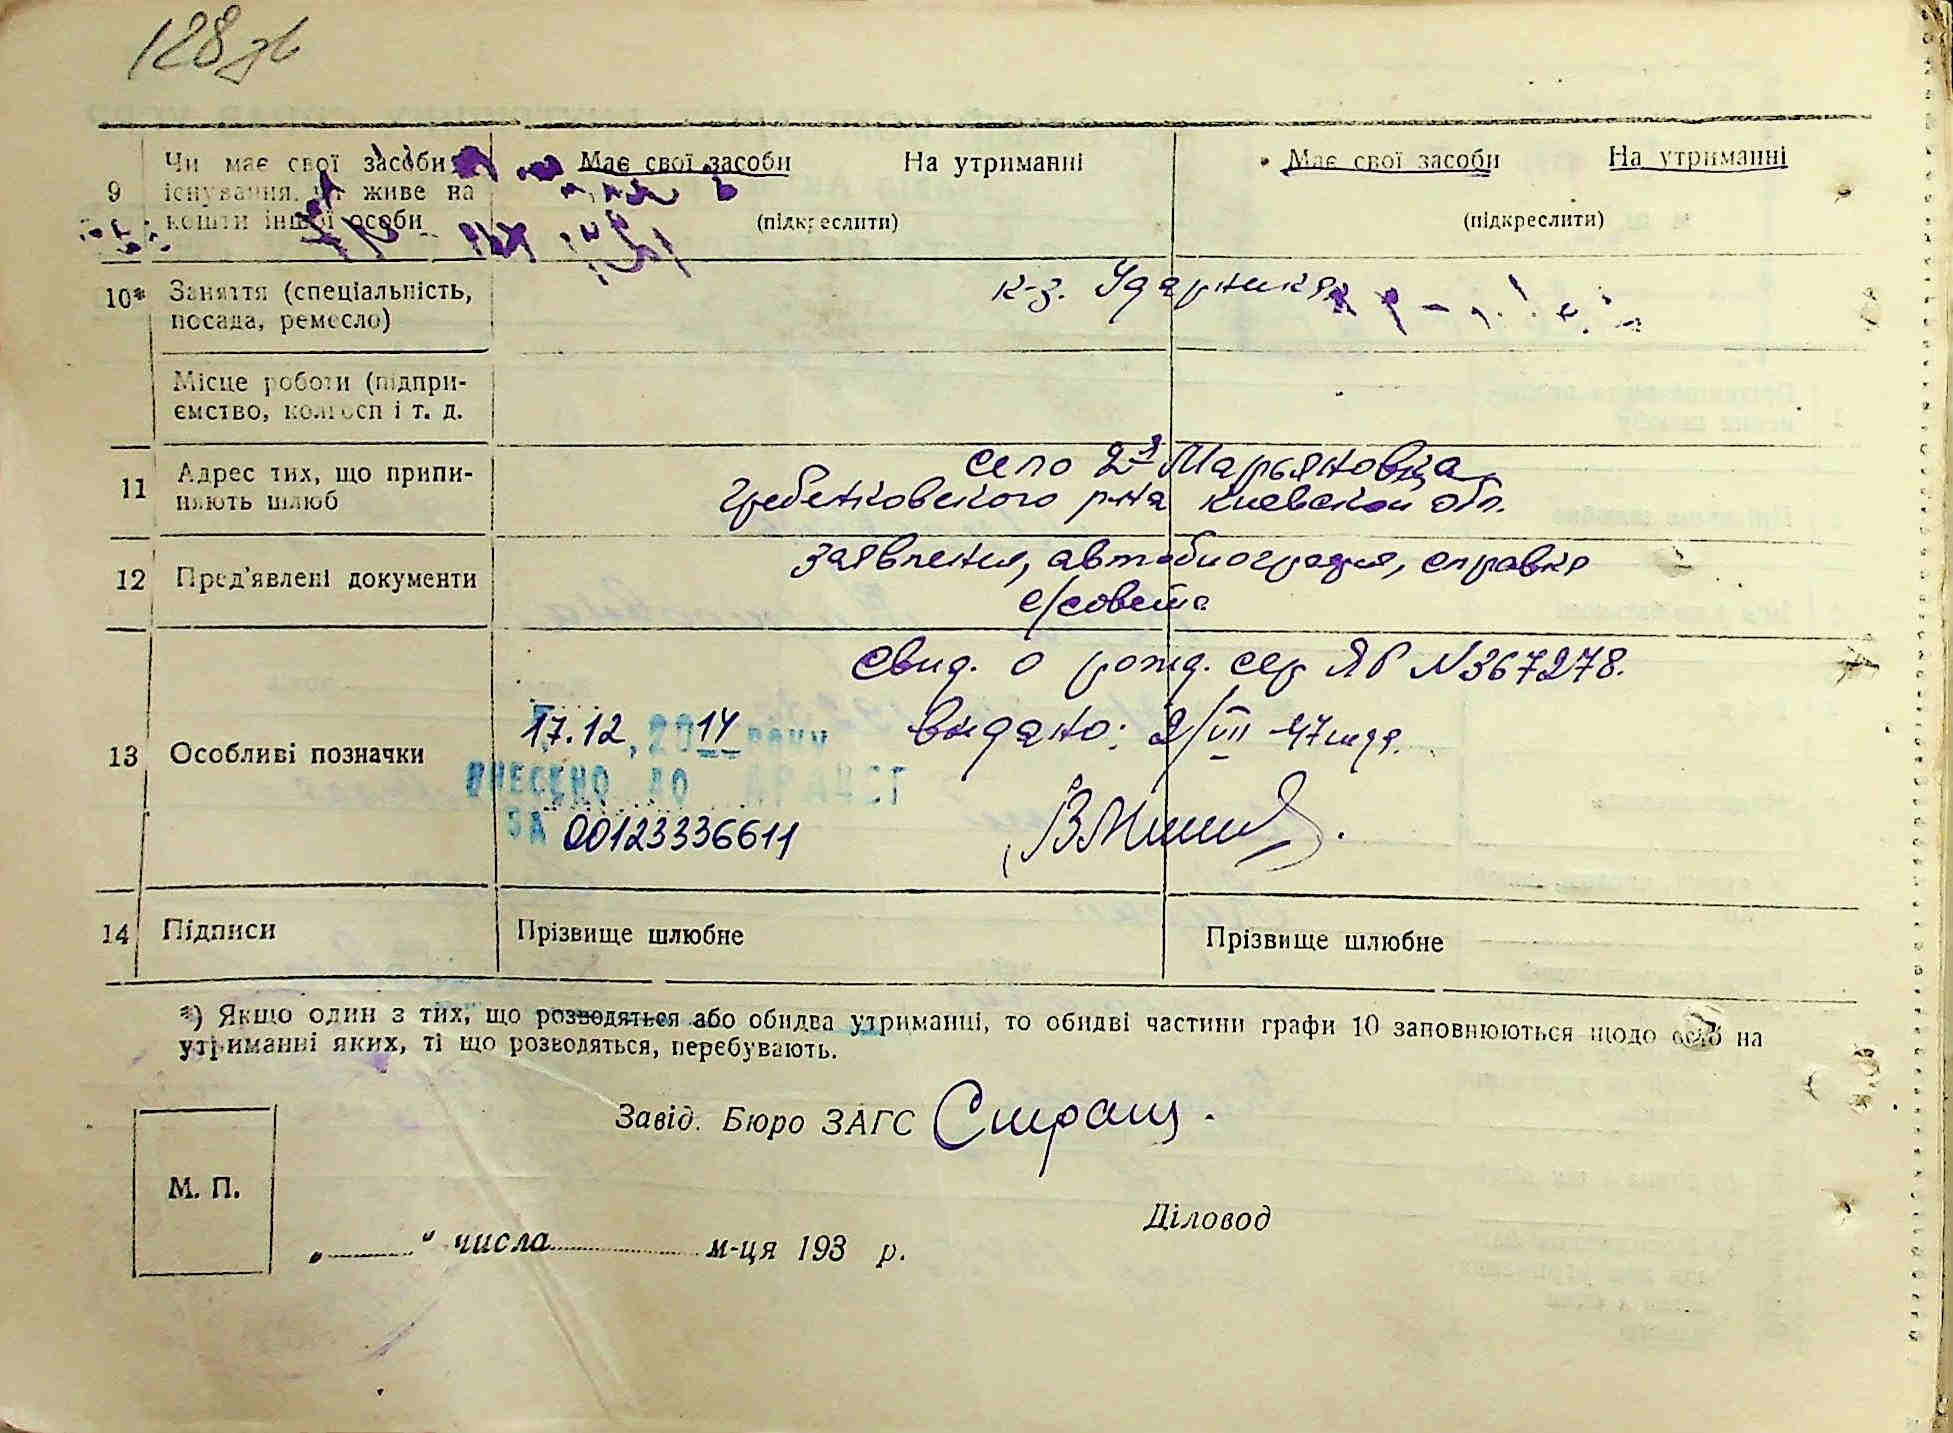 128 зв
9
Чи має свої засоби існування, чи живе на кошти іншої особи
Має свої засоби На утриманні
(підкреслити)
Має свої засоби На утриманні
(підкреслити)
10*
Заняття (спеціальність, посада, ремесло)
к-з. Ударника
Місце роботи (підприємство, колгосп і т. д.
11
Адрес тих, що припиняють шлюб
село 2я Марьяновка
Гребенковского р-на Киевской обл.
12
Пред'явлені документи
заявления, автобиография, справка
с/совета
13
Особливі позначки
Свид. о рожд. сер ЯР N 367278.
выдано: 2/VII 47 года.
17.12. 2014 року
ВНЕСЕНО ДО ДРАЦСГ
ЗА 00123336611
14
Підписи
Прізвище шлюбне
Прізвище шлюбне
*) Якщо один з тих, що розводяться або обидва утриманні, то обидві частини графи 10 заповнюються щодо осіб на
утриманні яких, ті що розводяться, перебувають.
Завід. Бюро ЗАГС
М. П.
Діловод
„ " числа м-ця 193 р.